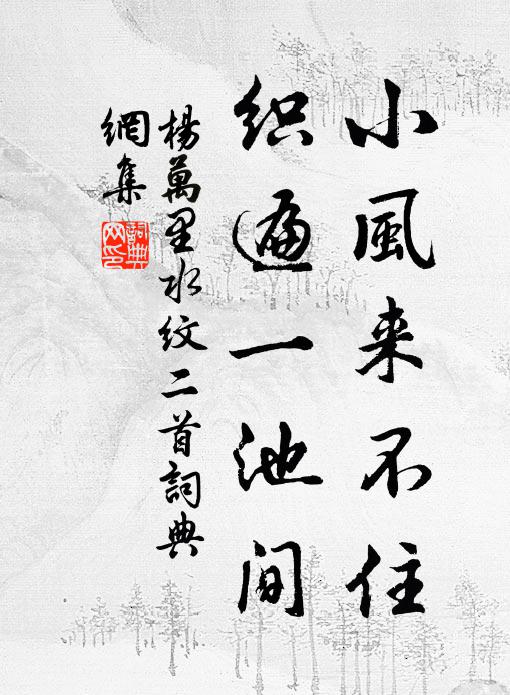 小風来不住
织遍一池间
楊萬里水紋二首詞典
網集
詞典网印